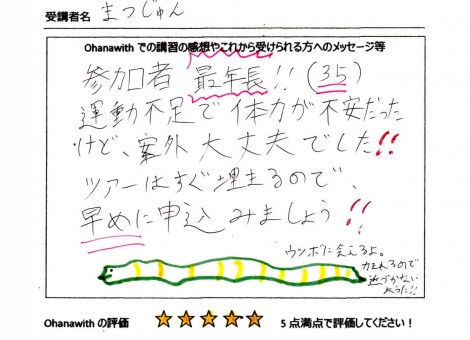 受講者名 まつじゅん
Ohanawith での講習の感想やこれから受けられる方へのメッセージ等
参加者 最年長!! (35)
運動不足で体力が不安だった
けど、案外 大丈夫でした!!
ツアーはすぐ埋まるので、
早めに申込みましょう!!
ウンボに会えるよ。
カまれるので
近づかない
ように!!
Ohanawith の評価 ★★★★★ 5 点満点で評価してください！